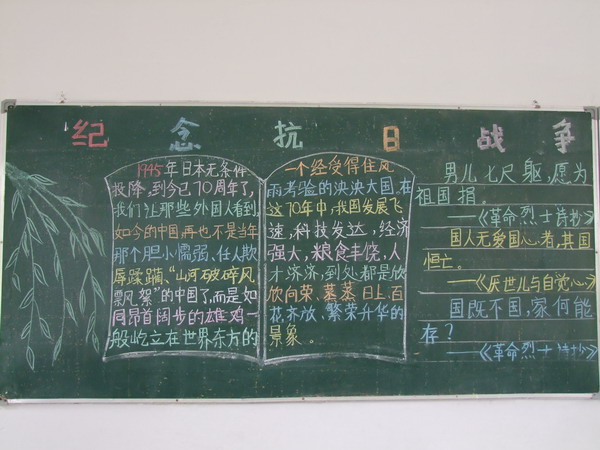 纪念抗日战争
1945年日本无条件
投降,到今已70周年了,
我们让那些外国人看到,
如今的中国再也不是当年
那个胆小懦弱、任人欺
辱蹂躏、“山河破碎风
飘絮”的中国了,而是如
同昂首阔步的雄鸡一
般屹立在世界东方的
一个经受得住风
雨考验的泱泱大国,在
这70年中,我国发展飞
速,科技发达,经济
强大,粮食丰饶,人
才济济,到处都是欣
欣向荣、蒸蒸日上、百
花齐放、繁荣升华的
景象。
男儿七尺躯,愿为
祖国捐
——《革命烈士诗抄》
国人无爱国心者,其国
恒亡。
——《厌世儿与自觉心》
国既不国,家何能
存?
——《革命烈士诗抄》